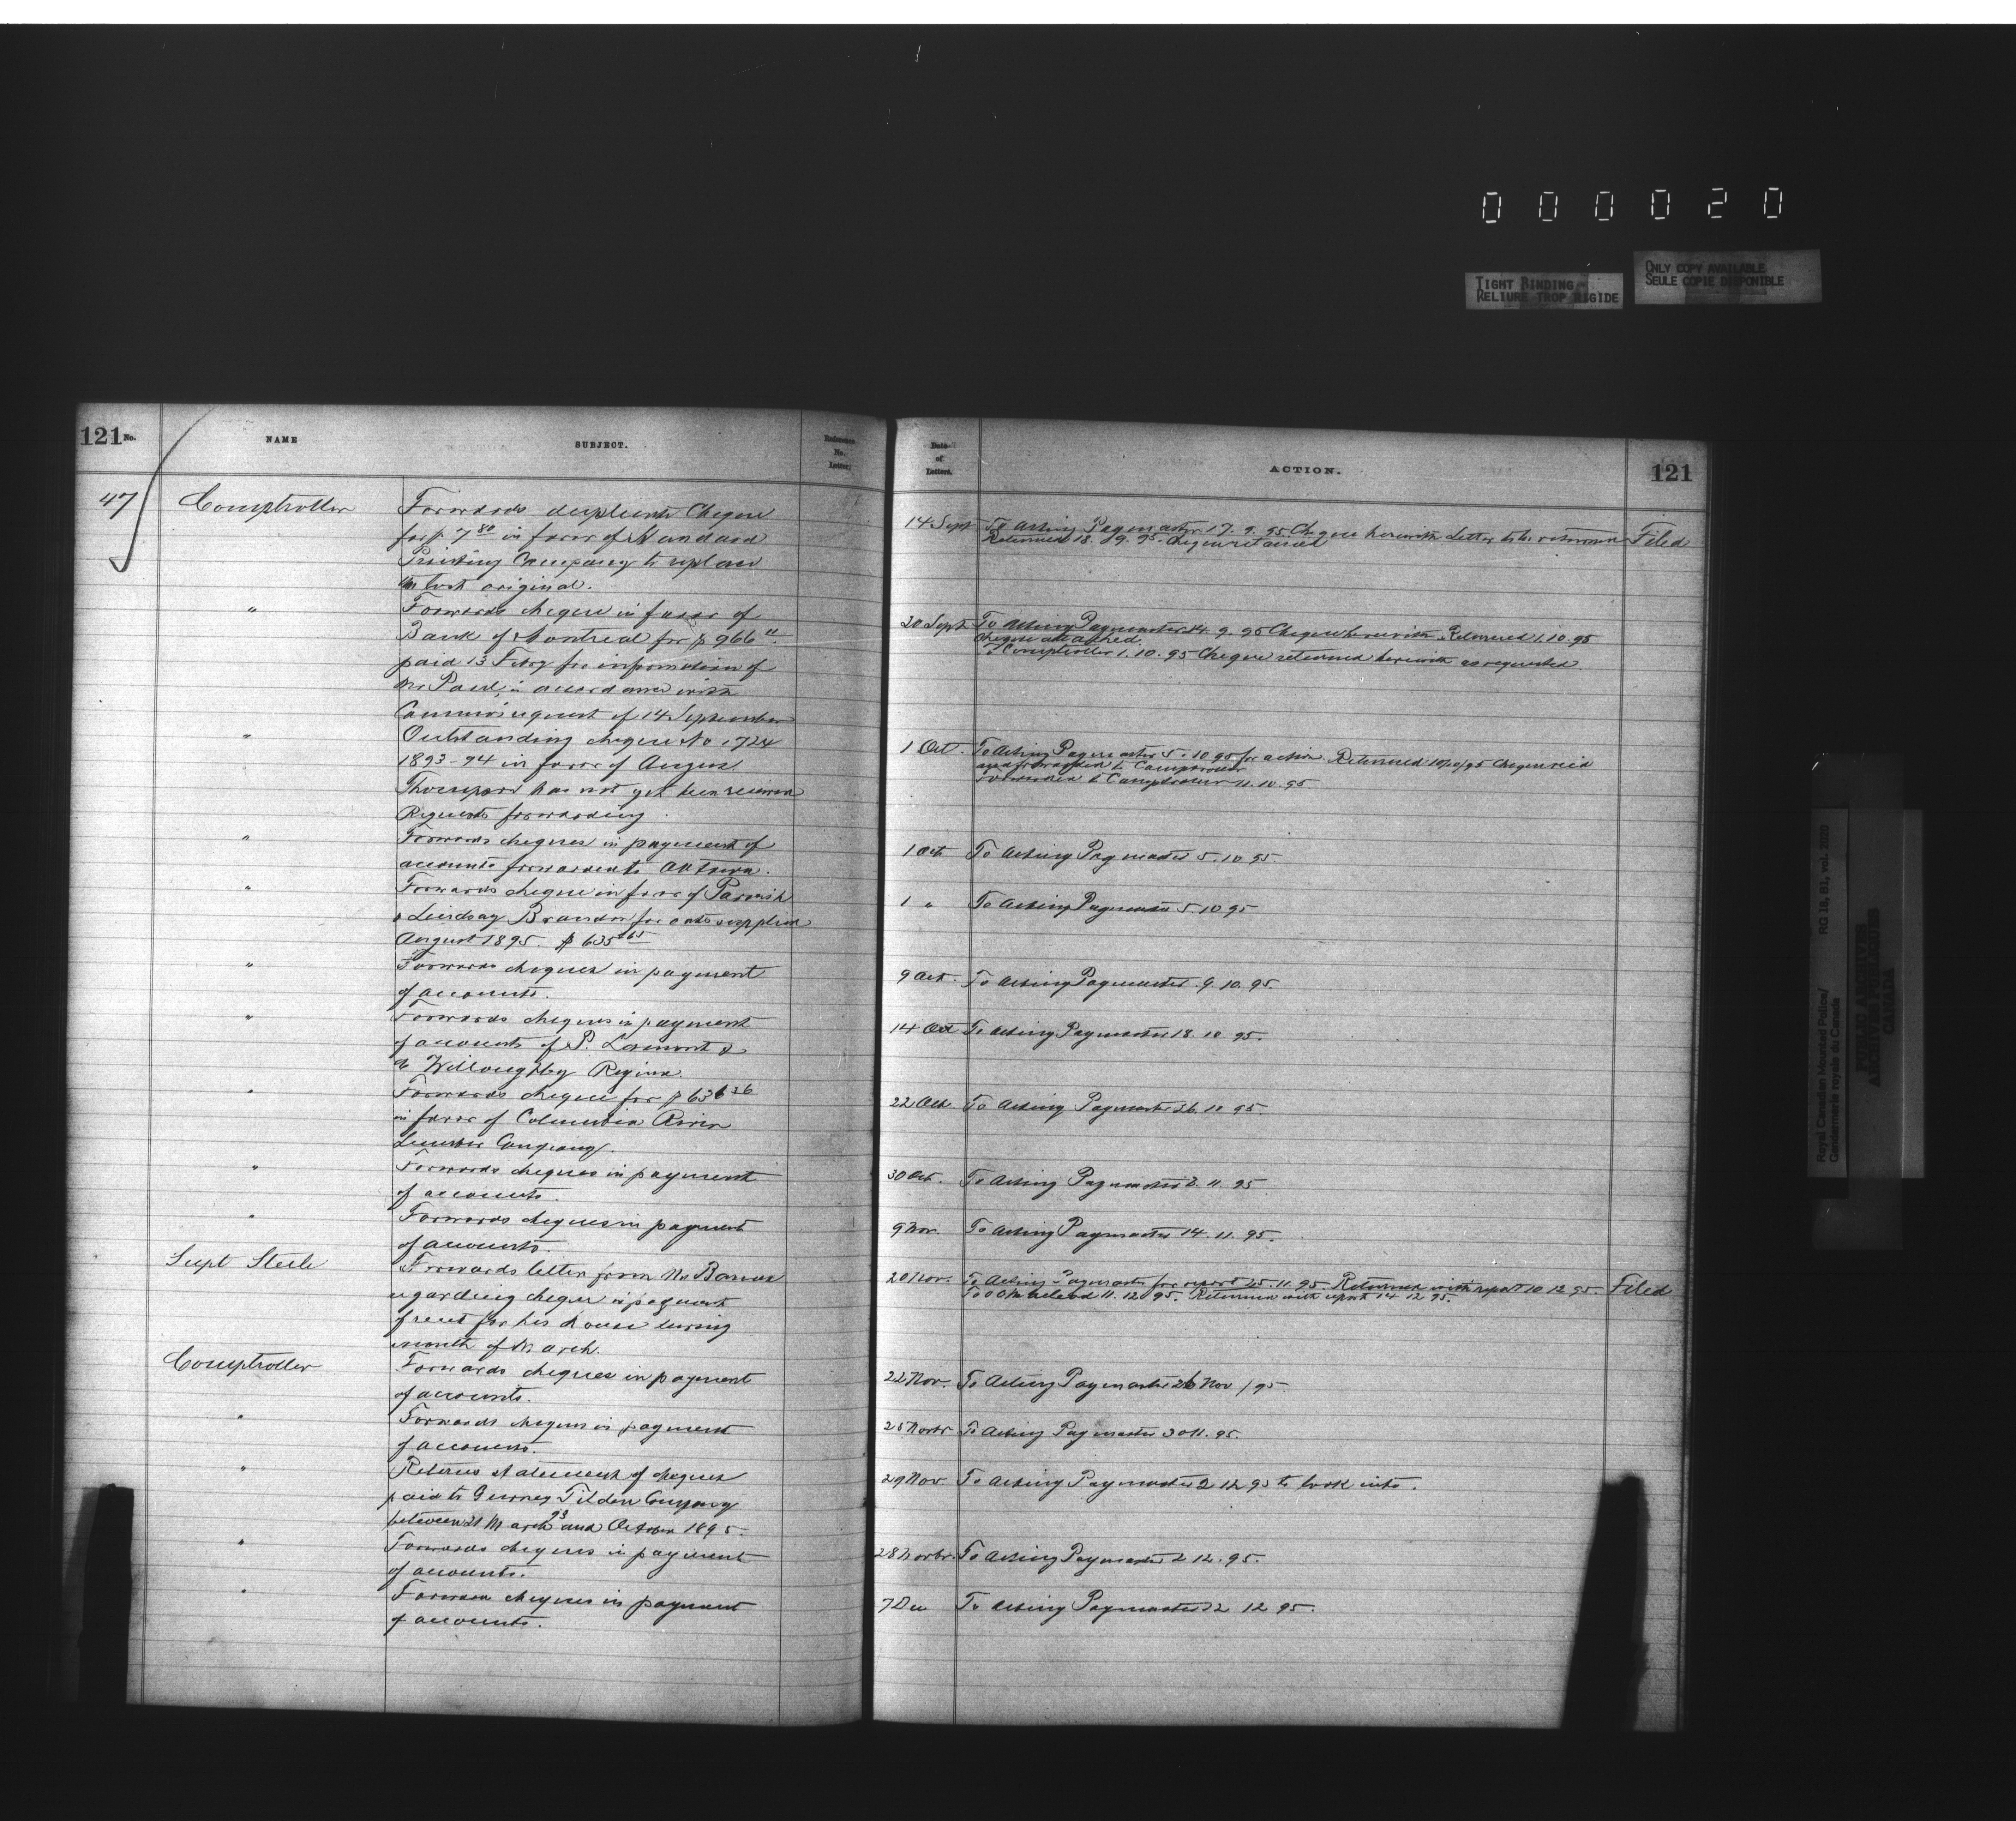 000020
TIGHT BINDING
RELIURE TROP RIGIDE
ONLY COPY AVAILABLE
SEULE COPIE DISPONIBLE
121 No.
NAME
SUBJECT.
Reference No. Letter.
47
Comptroller
Forwards duplicate Cheque
for $7.80 in favor of Standard
Printing Company to replace
lost original.
"
Forwards cheque in favor of
Bank of Montreal for $966
paid 13 Feby for information of
Mr Paul, in accordance with
Commrs request of 14 September
"
Outstanding cheque No 1724
1893-94 in favor of Angus
Thompson has not yet been received
Requests forwarding.
"
Forwards cheques in payment of
accounts forwarded to Ottawa.
"
Forwards cheque in favor of Parrish
& Lindsay Brandon for oats supplied
August 1895. $635.65
"
Forwards cheques in payment
of accounts.
"
Forwards cheques in payment
of accounts of P. Lamont &
Willoughby Regina.
"
Forwards cheque for $636.36
in favor of Columbia River
Lumber Company.
"
Forwards cheques in payment
of accounts.
"
Forwards cheques in payment
of accounts.
Supt Steele
Forwards letter from Mr
regarding cheque in payment
of rent for his house during
month of March.
Comptroller
Forwards cheques in payment
of accounts.
"
Forwards cheques in payment
of accounts.
"
Returns statement of cheques
paid to Gurney Tilden Company
between 21 March 93 and October 1895.
"
Forwards cheques in payment
of accounts.
"
Forwards cheques in payment
of accounts.
Date of Letters.
ACTION.
121
14 Sept To Acting Paymaster 17.9.95 Cheque herewith Letter to be returned Filed
Returned 18.9.95. Cheque retained
20 Sept To Acting Paymaster 24.9.95 Cheque herewith. Returned 1.10.95
cheque attached.
Comptroller 1.10.95 Cheque returned herewith as requested.
1 Oct. To Acting Paymaster 5.10.95 for action. Returned 10/10/95 Cheque
and forwarded to Comptroller
Forwarded to Comptroller 11.10.95
1 Oct To Acting Paymaster 5.10.95.
1 " To Acting Paymaster 5.10.95
9 Oct. To Acting Paymaster 9.10.95.
14 Oct To Acting Paymaster 18.10.95.
22 Oct To Acting Paymaster 26.10.95.
30 Oct. To Acting Paymaster 11.95
9 Nov. To Acting Paymaster 14.11.95.
20 Nov. To Acting Paymaster for report 25.11.95. Returned with report 10 12 95. Filed
To O C Macleod 11.12.95. Returned with report 14 12 95.
22 Nov. To Acting Paymaster 26 Nov /95.
25 Novbr To Acting Paymaster 30 11.95.
29 Nov To Acting Paymaster 2 12 95 to look into.
28 Novbr. To Acting Paymaster 2 12.95.
7 Dec To Acting Paymaster 12 95.
Royal Canadian Mounted Police/
Gendarmerie royale du Canada
RG 18, B1, vol. 2020
PUBLIC ARCHIVES
ARCHIVES PUBLIQUES
CANADA